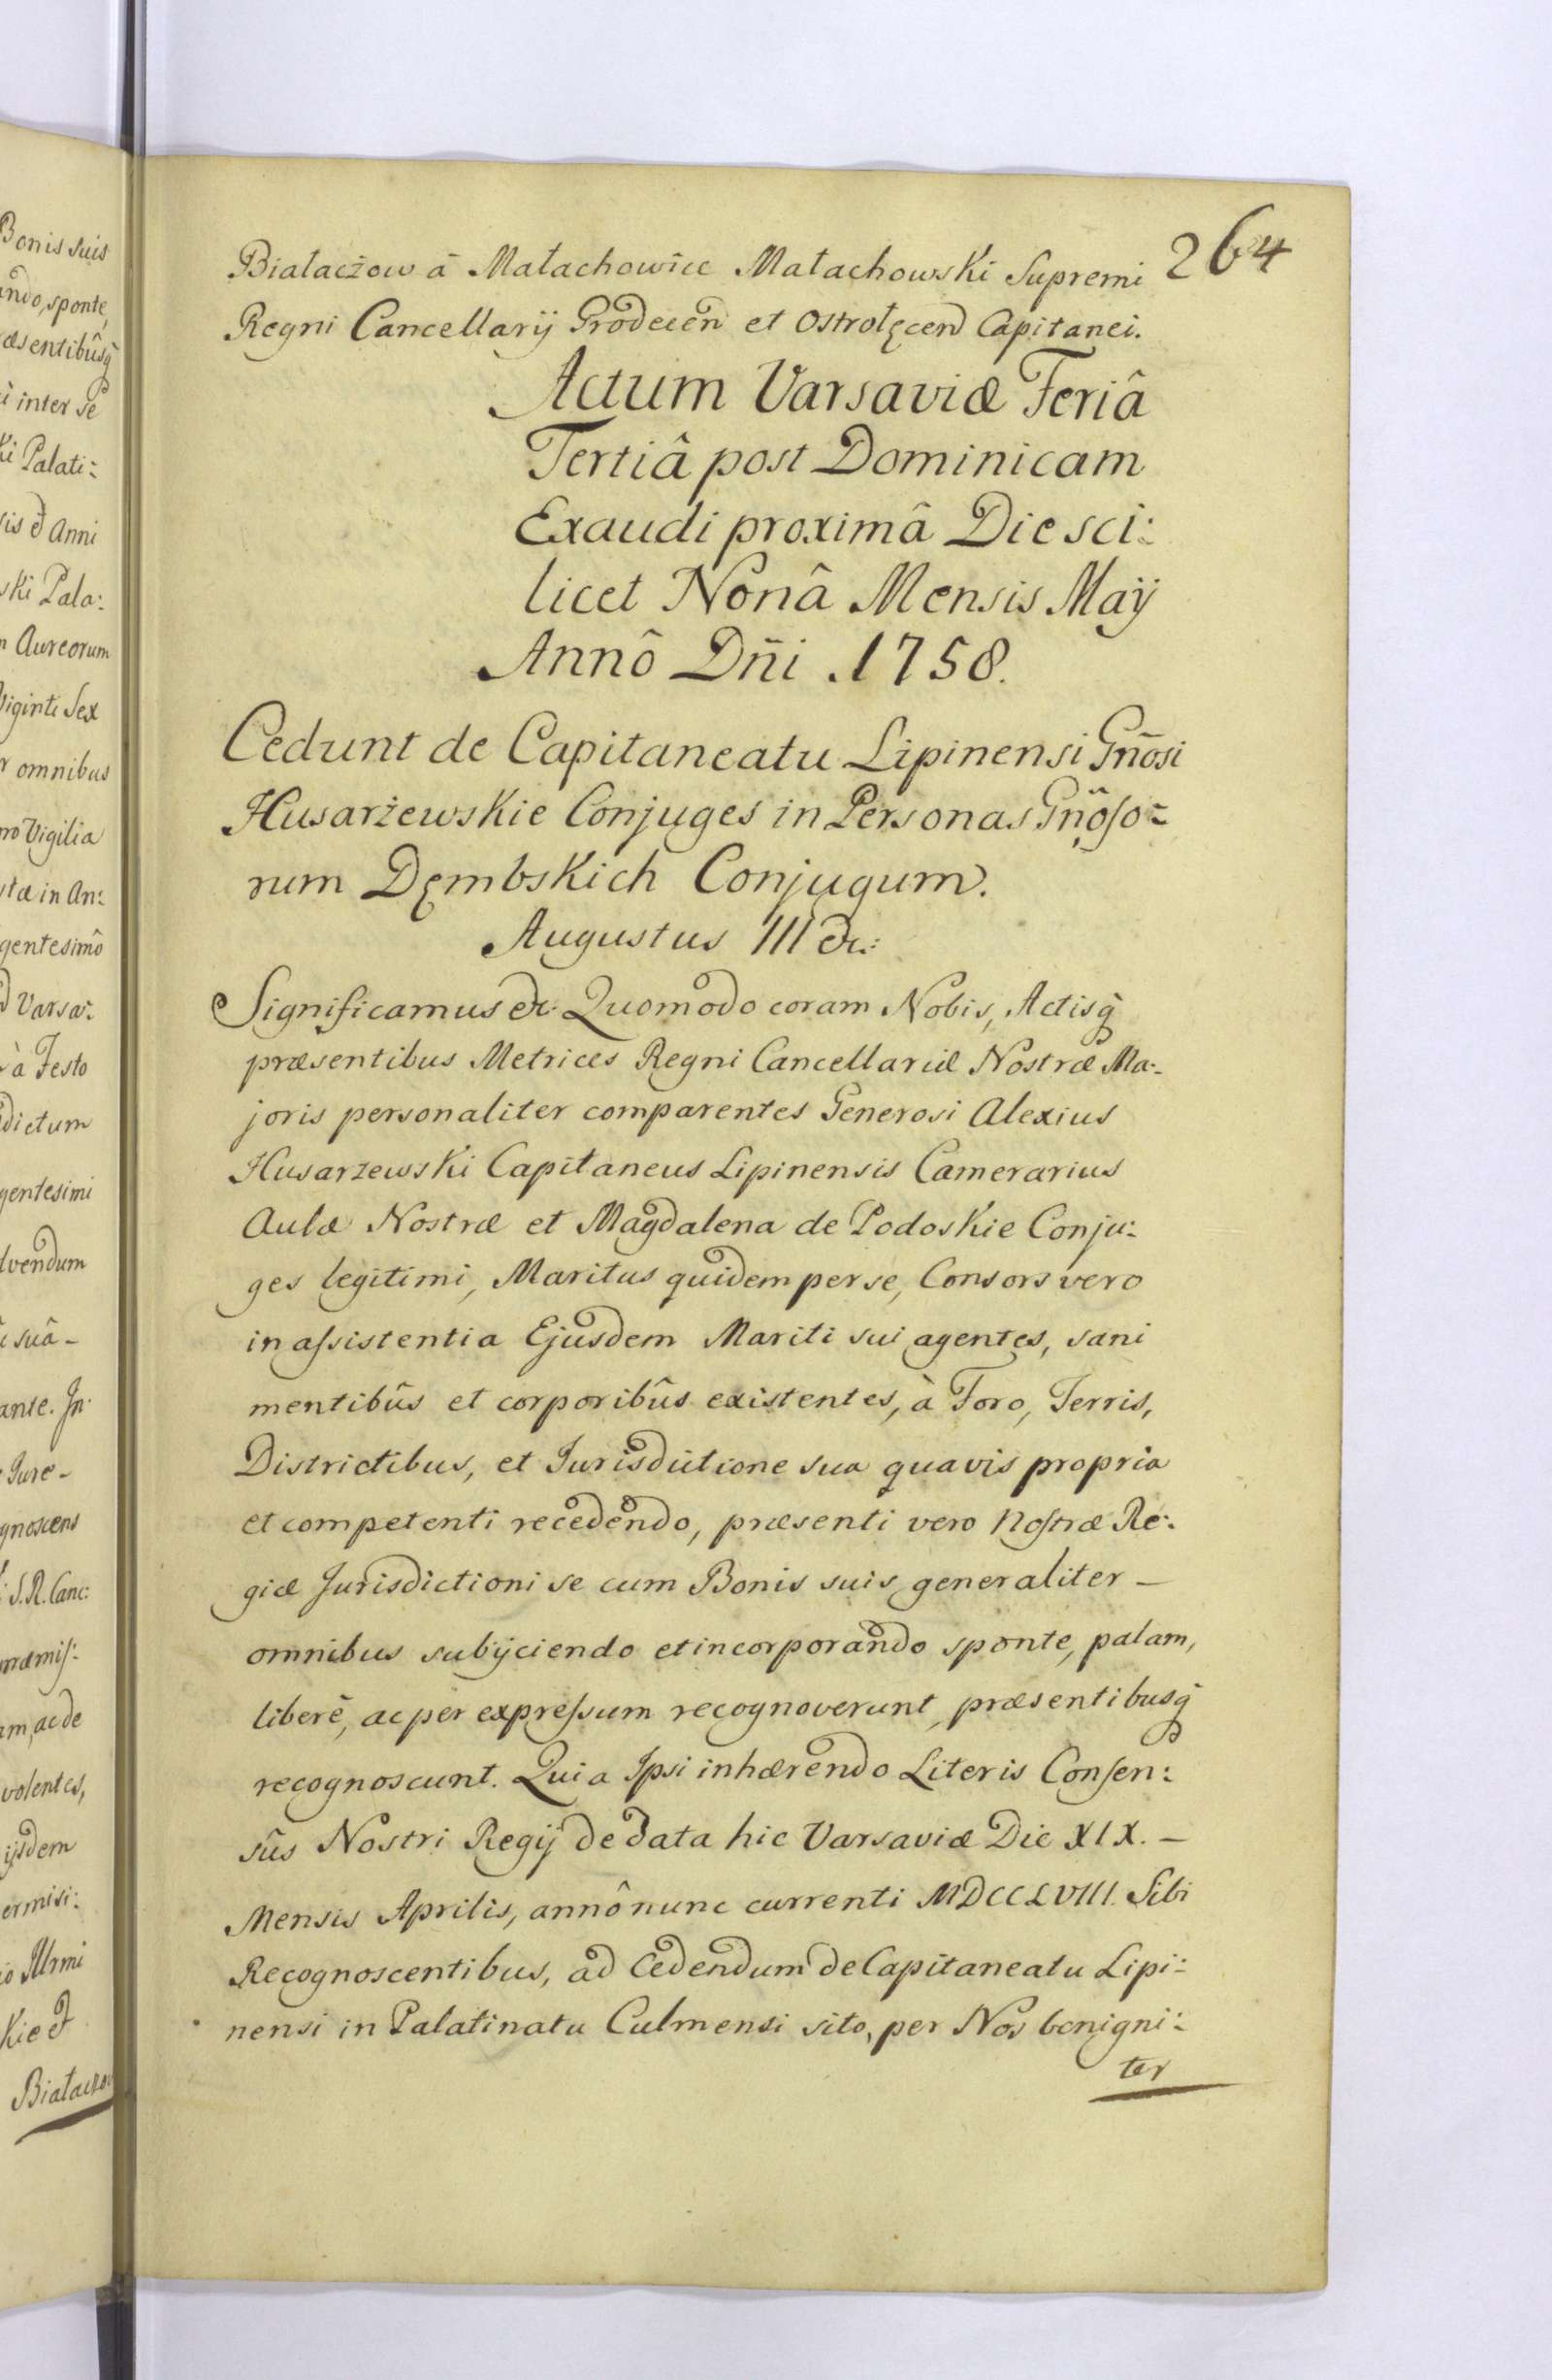 Bonis suis
ando, sponte,
æsentibûsq̃
i inter se
ki Palati:
sis & Anni
ski Pala:
Aureorum
Viginti Sex
omnibus
pro Vigilia
in An:
gentesimô
Varsa:
à Festo
dictum
gentesimi
lvendum
suâ -
ante. In
Jure -
gnoscens
S. R. Canc:
ac de
volentes,
ijsdem
ermisi:
Illrmi
kie &
Białaczow
264
Białaczow â Małachowice Małachowski Supremi
Regni Cancellarij Grodecen̄ et Ostrołęcen̄ Capitanei.
Actum Varsaviæ Feriâ
Tertiâ post Dominicam
Exaudi proximâ Die sci:
licet Nonâ Mensis Maÿ
Annô Dñi .1758.
Cedunt de Capitaneatu Lipinensi Gñosi
Husarżewskie Conjuges in Personas Gñoso-
rum Dęmbskich Conjugum.
Augustus III &c:
Significamus &c. Quomodo coram Nobis, Actisq̃
præsentibus Metrices Regni Cancellariæ Nostræ Ma:
joris personaliter comparentes Generosi Alexius
Husarzewski Capitaneus Lipinensis Camerarius
Aulæ Nostræ et Magdalena de Podoskie Conju:
ges legitimi, Maritus quidem per se, Consors vero
in assistentia Ejusdem Mariti sui agentes, sani
mentibûs et corporibûs existentes, à Foro, Terris,
Districtibus, et Jurisdictione sua quavis propria
et competenti recedendo, præsenti vero Nostræ Re:
giæ Jurisdictioni se cum Bonis suis generaliter -
omnibus subijciendo et incorporando sponte, palam,
liberè, ac per expressum recognoverunt, præsentibusq̃
recognoscunt. Quia Ipsi inhærendo Literis Consen:
sûs Nostri Regij de data hic Varsaviæ Die XIX. -
Mensis Aprilis, annô nunc currenti MDCCLVIII. Sibi
Recognoscentibus, ad Cedendum de Capitaneatu Lipi:
nensi in Palatinatu Culmensi sito, per Nos benigni:
ter